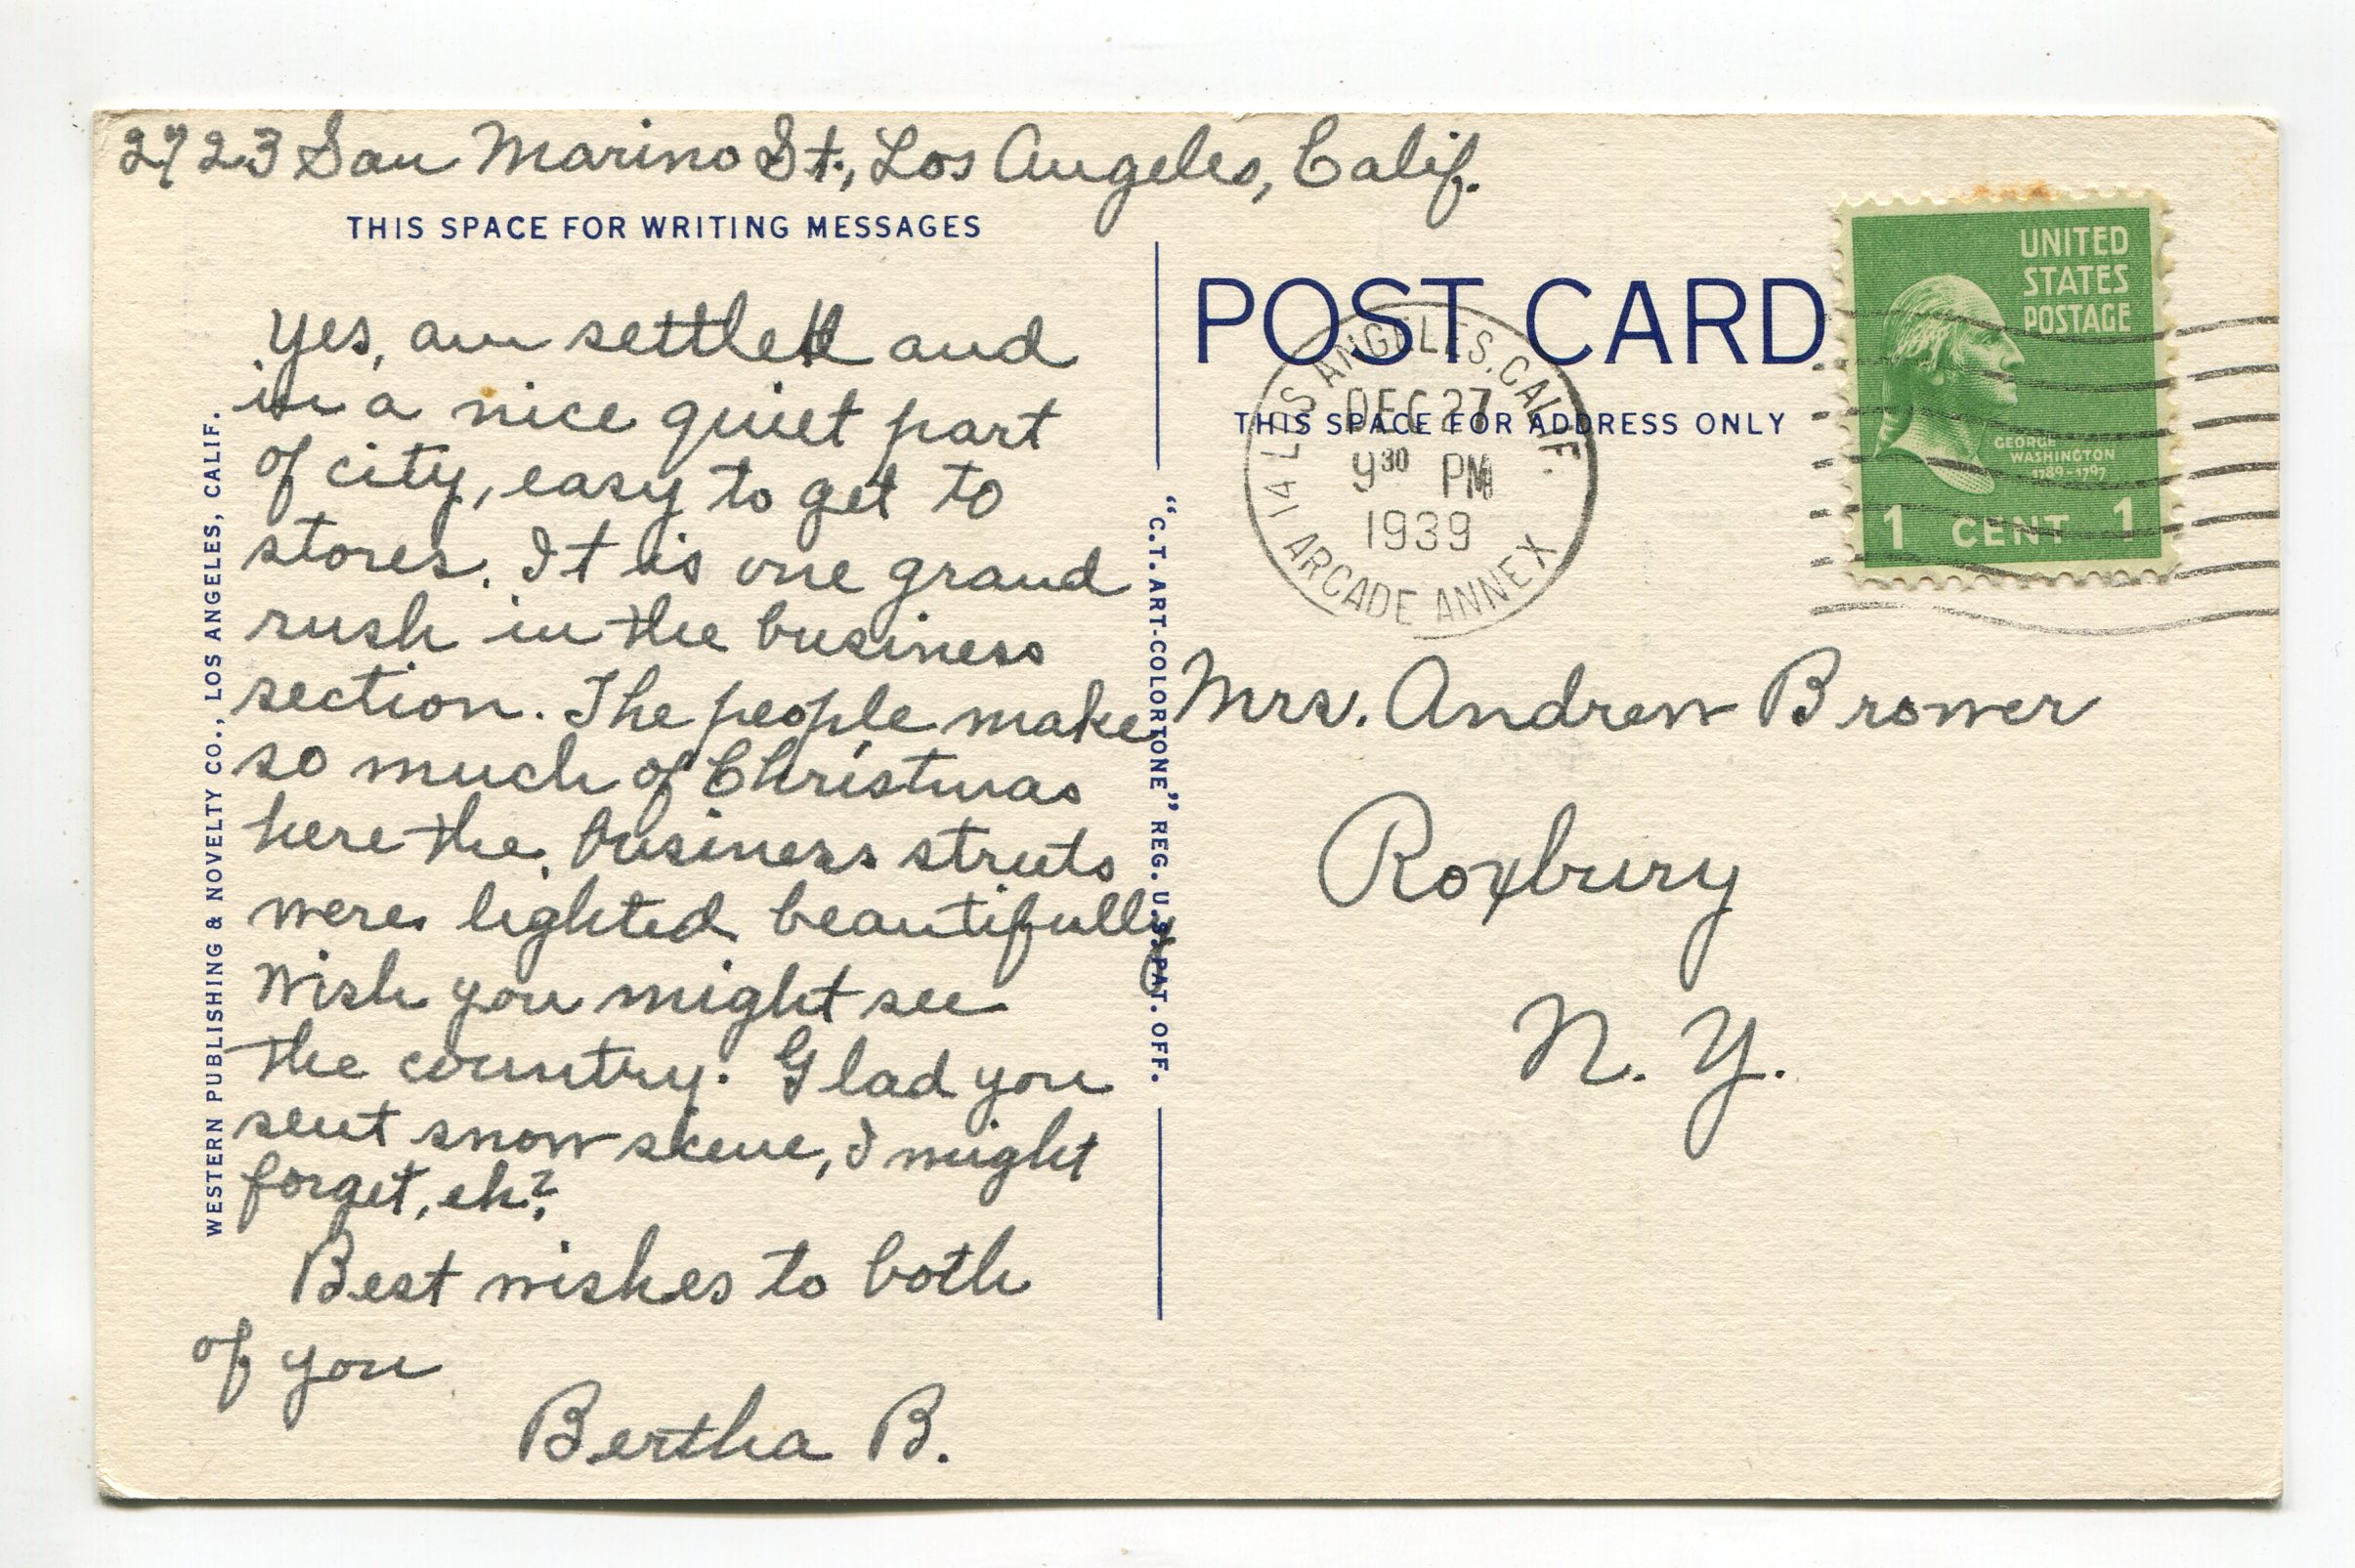 2723 San Marino St., Los Angeles, Calif.
THIS SPACE FOR WRITING MESSAGES
Yes, am settled and
in a nice quiet part
of city, easy to get to
stores. It is one grand
rush in the business
section. The people make
so much of Christmas
here the business streets
were lighted beautifully
Wish you might see
the country. Glad you
sent snow skene, I might
forget, eh?
Best wishes to both
of you
Bertha B.
WESTERN PUBLISHING & NOVELTY CO., LOS ANGELES, CALIF.
"C.T. ART-COLORTONE" REG. U.S. PAT. OFF.
POST CARD
THIS SPACE FOR ADDRESS ONLY
LOS ANGELES, CALIF.
DEC 27
9 30 PM
1939
14 ARCADE ANNEX
UNITED
STATES
POSTAGE
GEORGE
WASHINGTON
1789-1797
1 CENT 1
Mrs. Andrew Brower
Roxbury
N. Y.